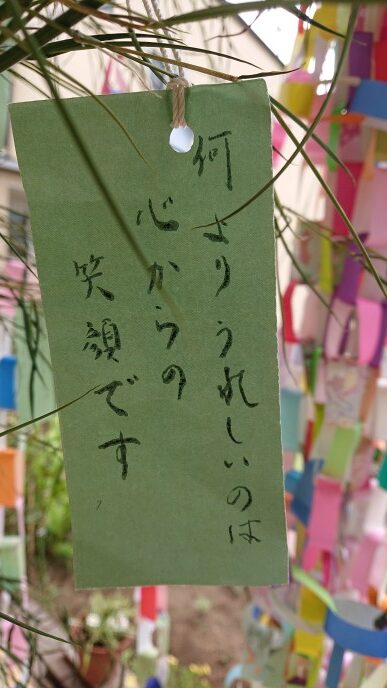 何よりうれしいのは
心からの
笑顔です